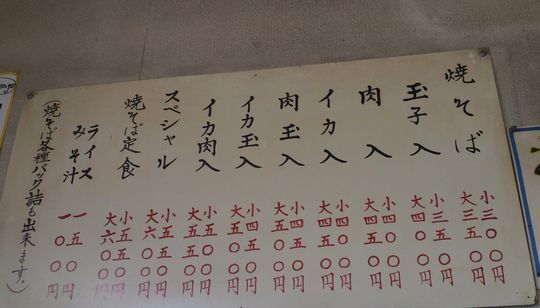 焼そば 小三〇〇円
大三五〇円
玉子入 小三五〇円
大四〇〇円
肉入 小四〇〇円
大四五〇円
イカ入 小四〇〇円
大四五〇円
肉玉入 小四五〇円
大五〇〇円
イカ玉入 小四五〇円
大五〇〇円
イカ肉入 小五〇〇円
大五五〇円
スペシャル 小五五〇円
大六〇〇円
焼そば定食 小五五〇円
大六〇〇円
ライス 一五〇円
みそ汁 一〇〇円
(焼そば各種パック詰も出来ます。)